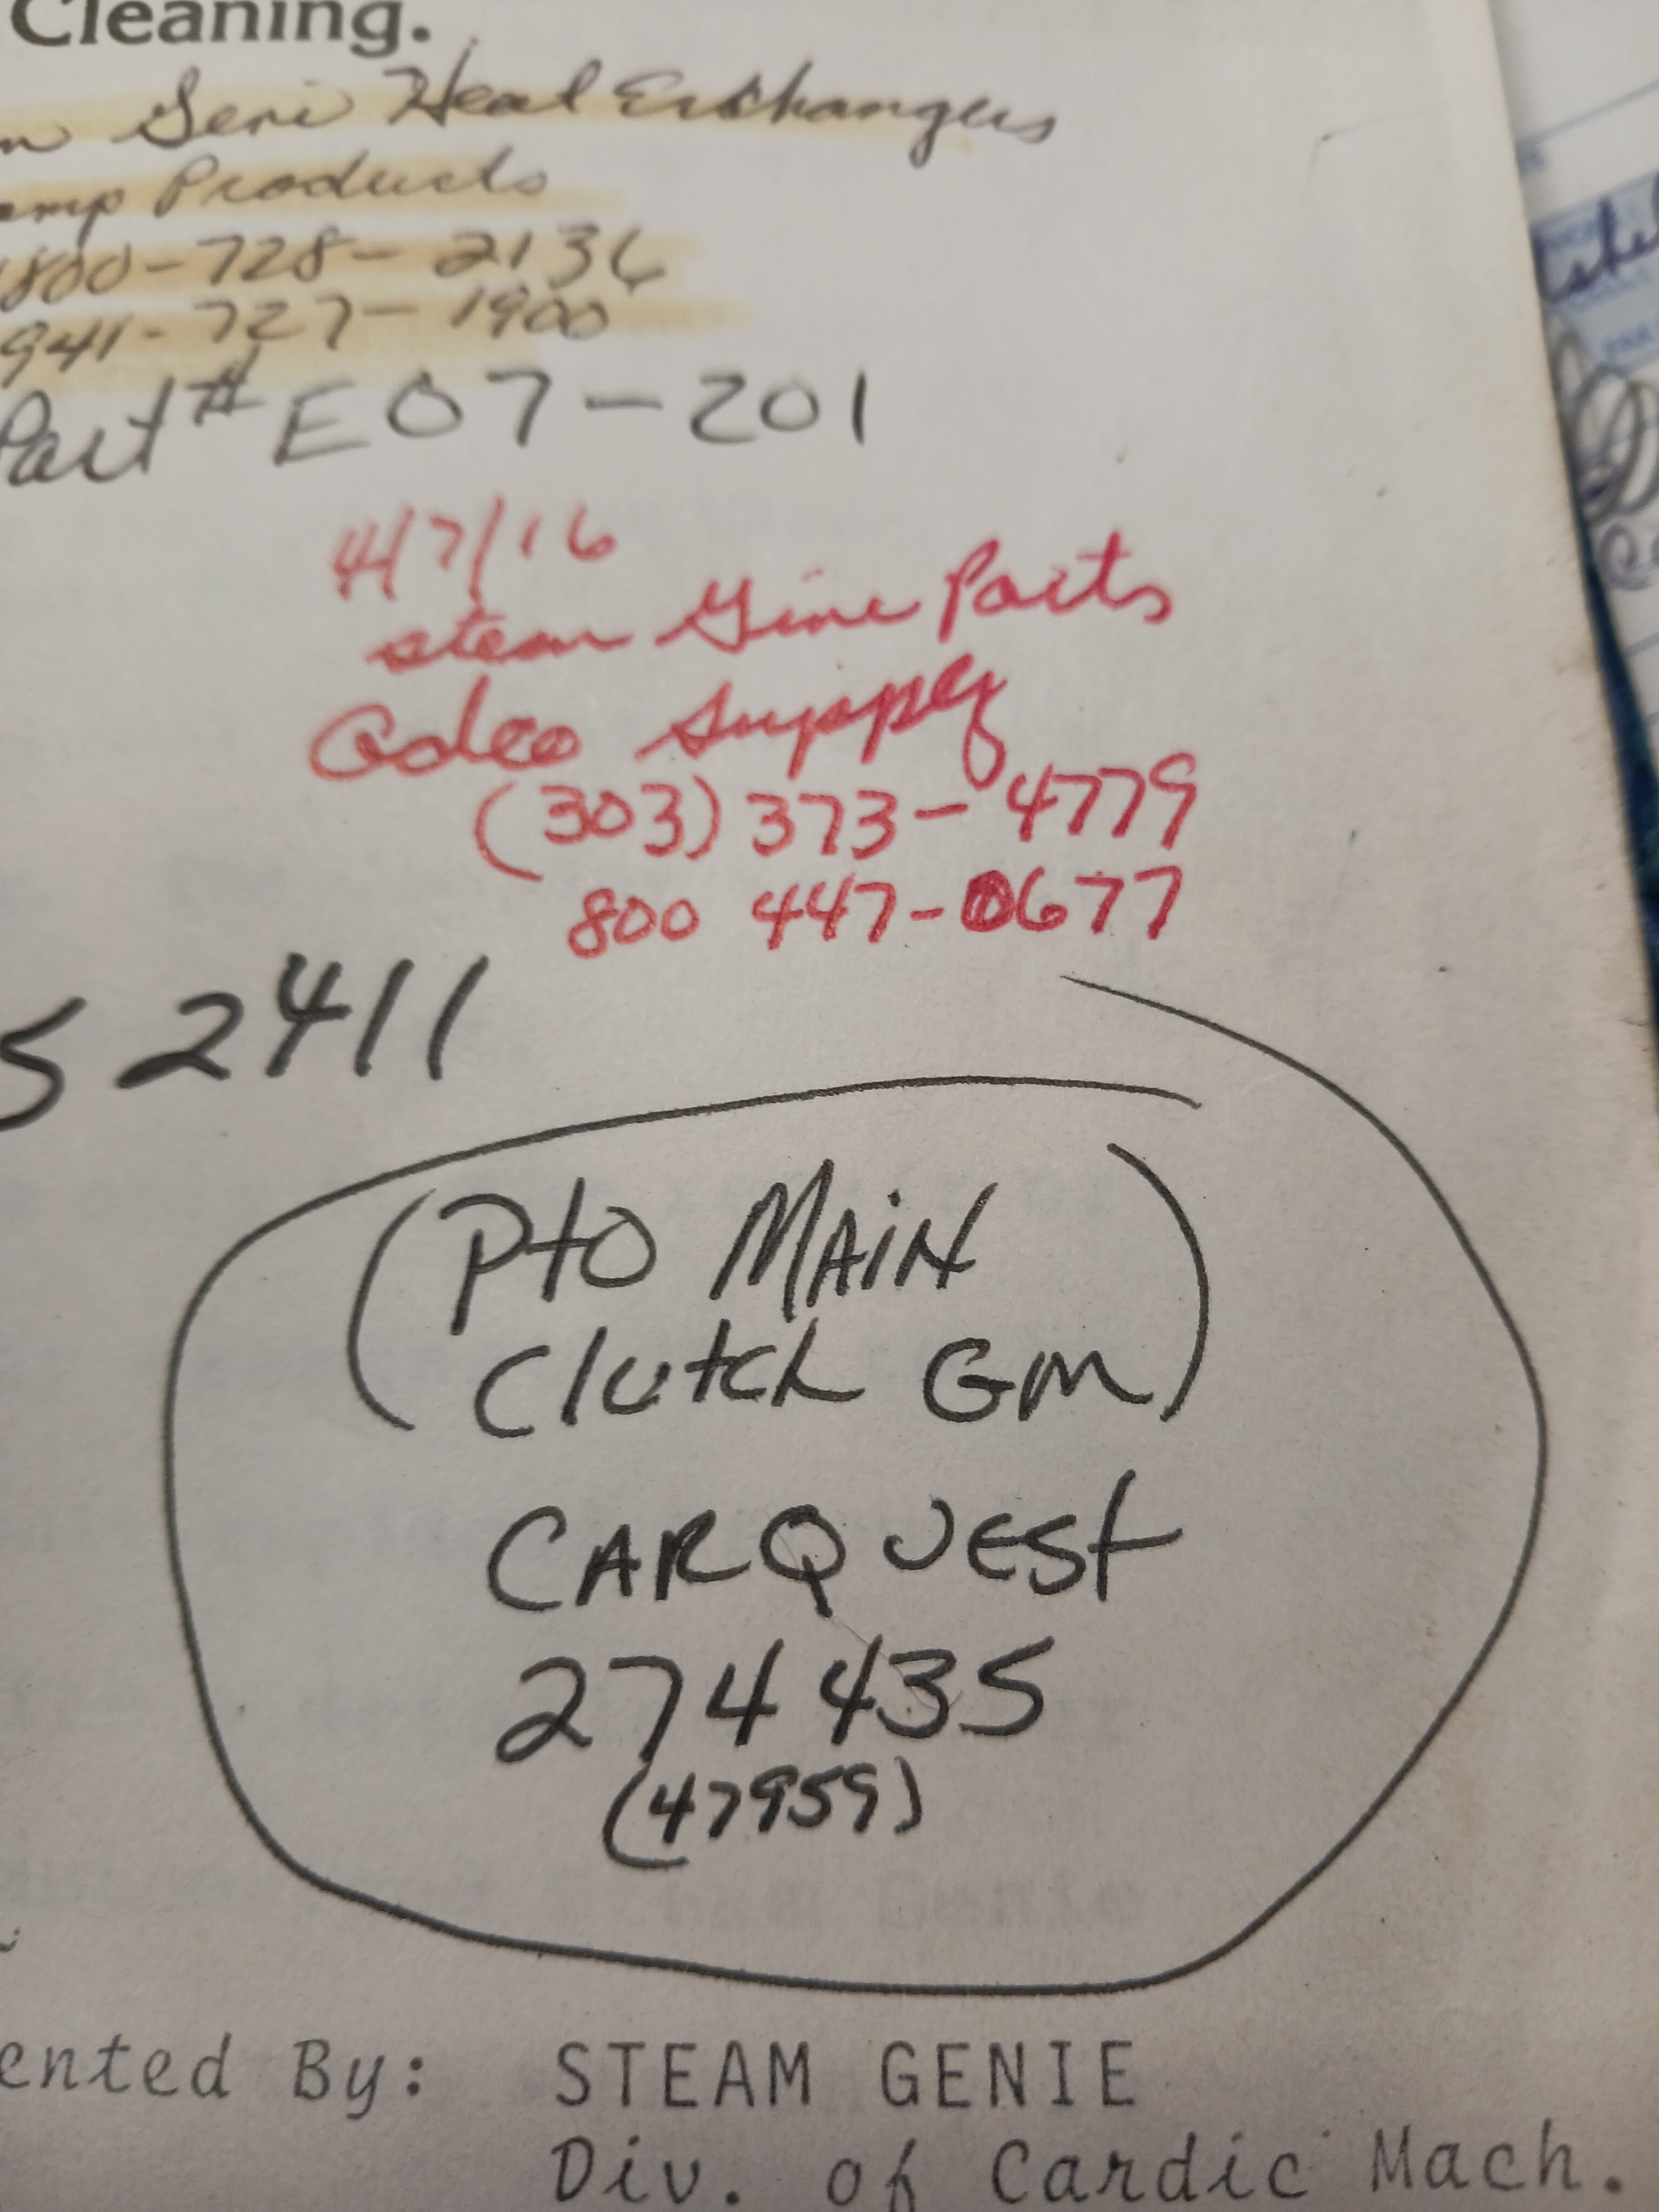 Cleaning.
Geni Heat Exchangers
Products
1800-728-2136
941-727-1900
Part # E07-201
4/7/16
steam Gine Parts
Adco Supply
(303) 373-4779
800 447-0677
5 2411
(Pto MAiN
Clutch Gm)
CARQUEST
274435
(47959)
ented By: STEAM GENIE
Div. of Cardic Mach.